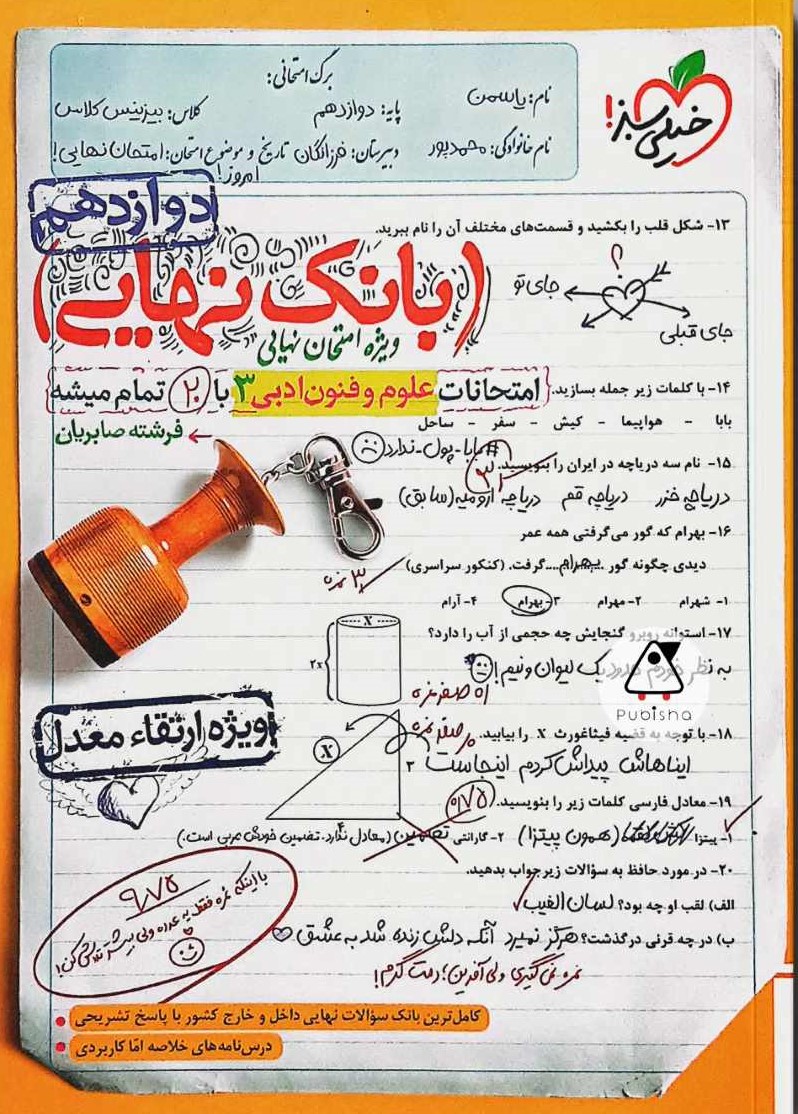 برگ امتحانی:
نام: یاسمن
پایه: دوازدهم
کلاس: بیزینس کلاس
نام خانوادگی: محمدپور
دبیرستان: فرزانگان
تاریخ و موضوع امتحان: امتحان نهایی!
امروز!
خیلی سبز!
دوازدهم
۱۳- شکل قلب را بکشید و قسمت‌های مختلف آن را نام ببرید.
؟
جای تو
جای قبلی
(بانک نهایی)
ویژه امتحان نهایی
۱۴- با کلمات زیر جمله بسازید.
امتحانات علوم و فنون ادبی ۳ با ۲۰ تمام میشه
بابا - هواپیما - کیش - سفر - ساحل
فرشته صابریان
#بابا-پول-ندارد
۱۵- نام سه دریاچه در ایران را بنویسید.
دریاچه خزر دریاچه قم دریاچه ارومیه (سابق)
۱۶- بهرام که گور می‌گرفتی همه عمر
دیدی چگونه گور ...بهرام... گرفت. (کنکور سراسری)
۳ نمره
۱- شهرام ۲- مهرام ۳- بهرام ۴- آرام
۱۷- استوانه روبرو گنجایش چه حجمی از آب را دارد؟
X
۲x
به نظر خودم حدود یک لیوان و نیم!
Pubisha
ویژه ارتقاء معدل
۱۸- با توجه به قضیه فیثاغورث X را بیابید.
ایناهاش پیداش کردم اینجاست
X
۲
۴
۱۹- معادل فارسی کلمات زیر را بنویسید.
۰/۷۵
۱- پیتزا (همون پیتزا) ۲- گارانتی تضمین (معادل ندارد. تضمین خودش عربی است.)
۲۰- در مورد حافظ به سؤالات زیر جواب بدهید.
الف) لقب او چه بود؟ لسان الغیب
ب) در چه قرنی درگذشت؟ هرگز نمیرد آنکه دلش زنده شد به عشق
نمره نمی‌گیری ولی آفرین؛ دمت گرم!
۹/۷۵
با اینکه نمره فقط یه عدده ولی بیشتر تلاش کن!
کامل‌ترین بانک سؤالات نهایی داخل و خارج کشور با پاسخ تشریحی
درس‌نامه‌های خلاصه امّا کاربردی